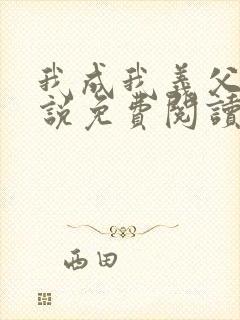 我成我義父
說免費閱讀
西田